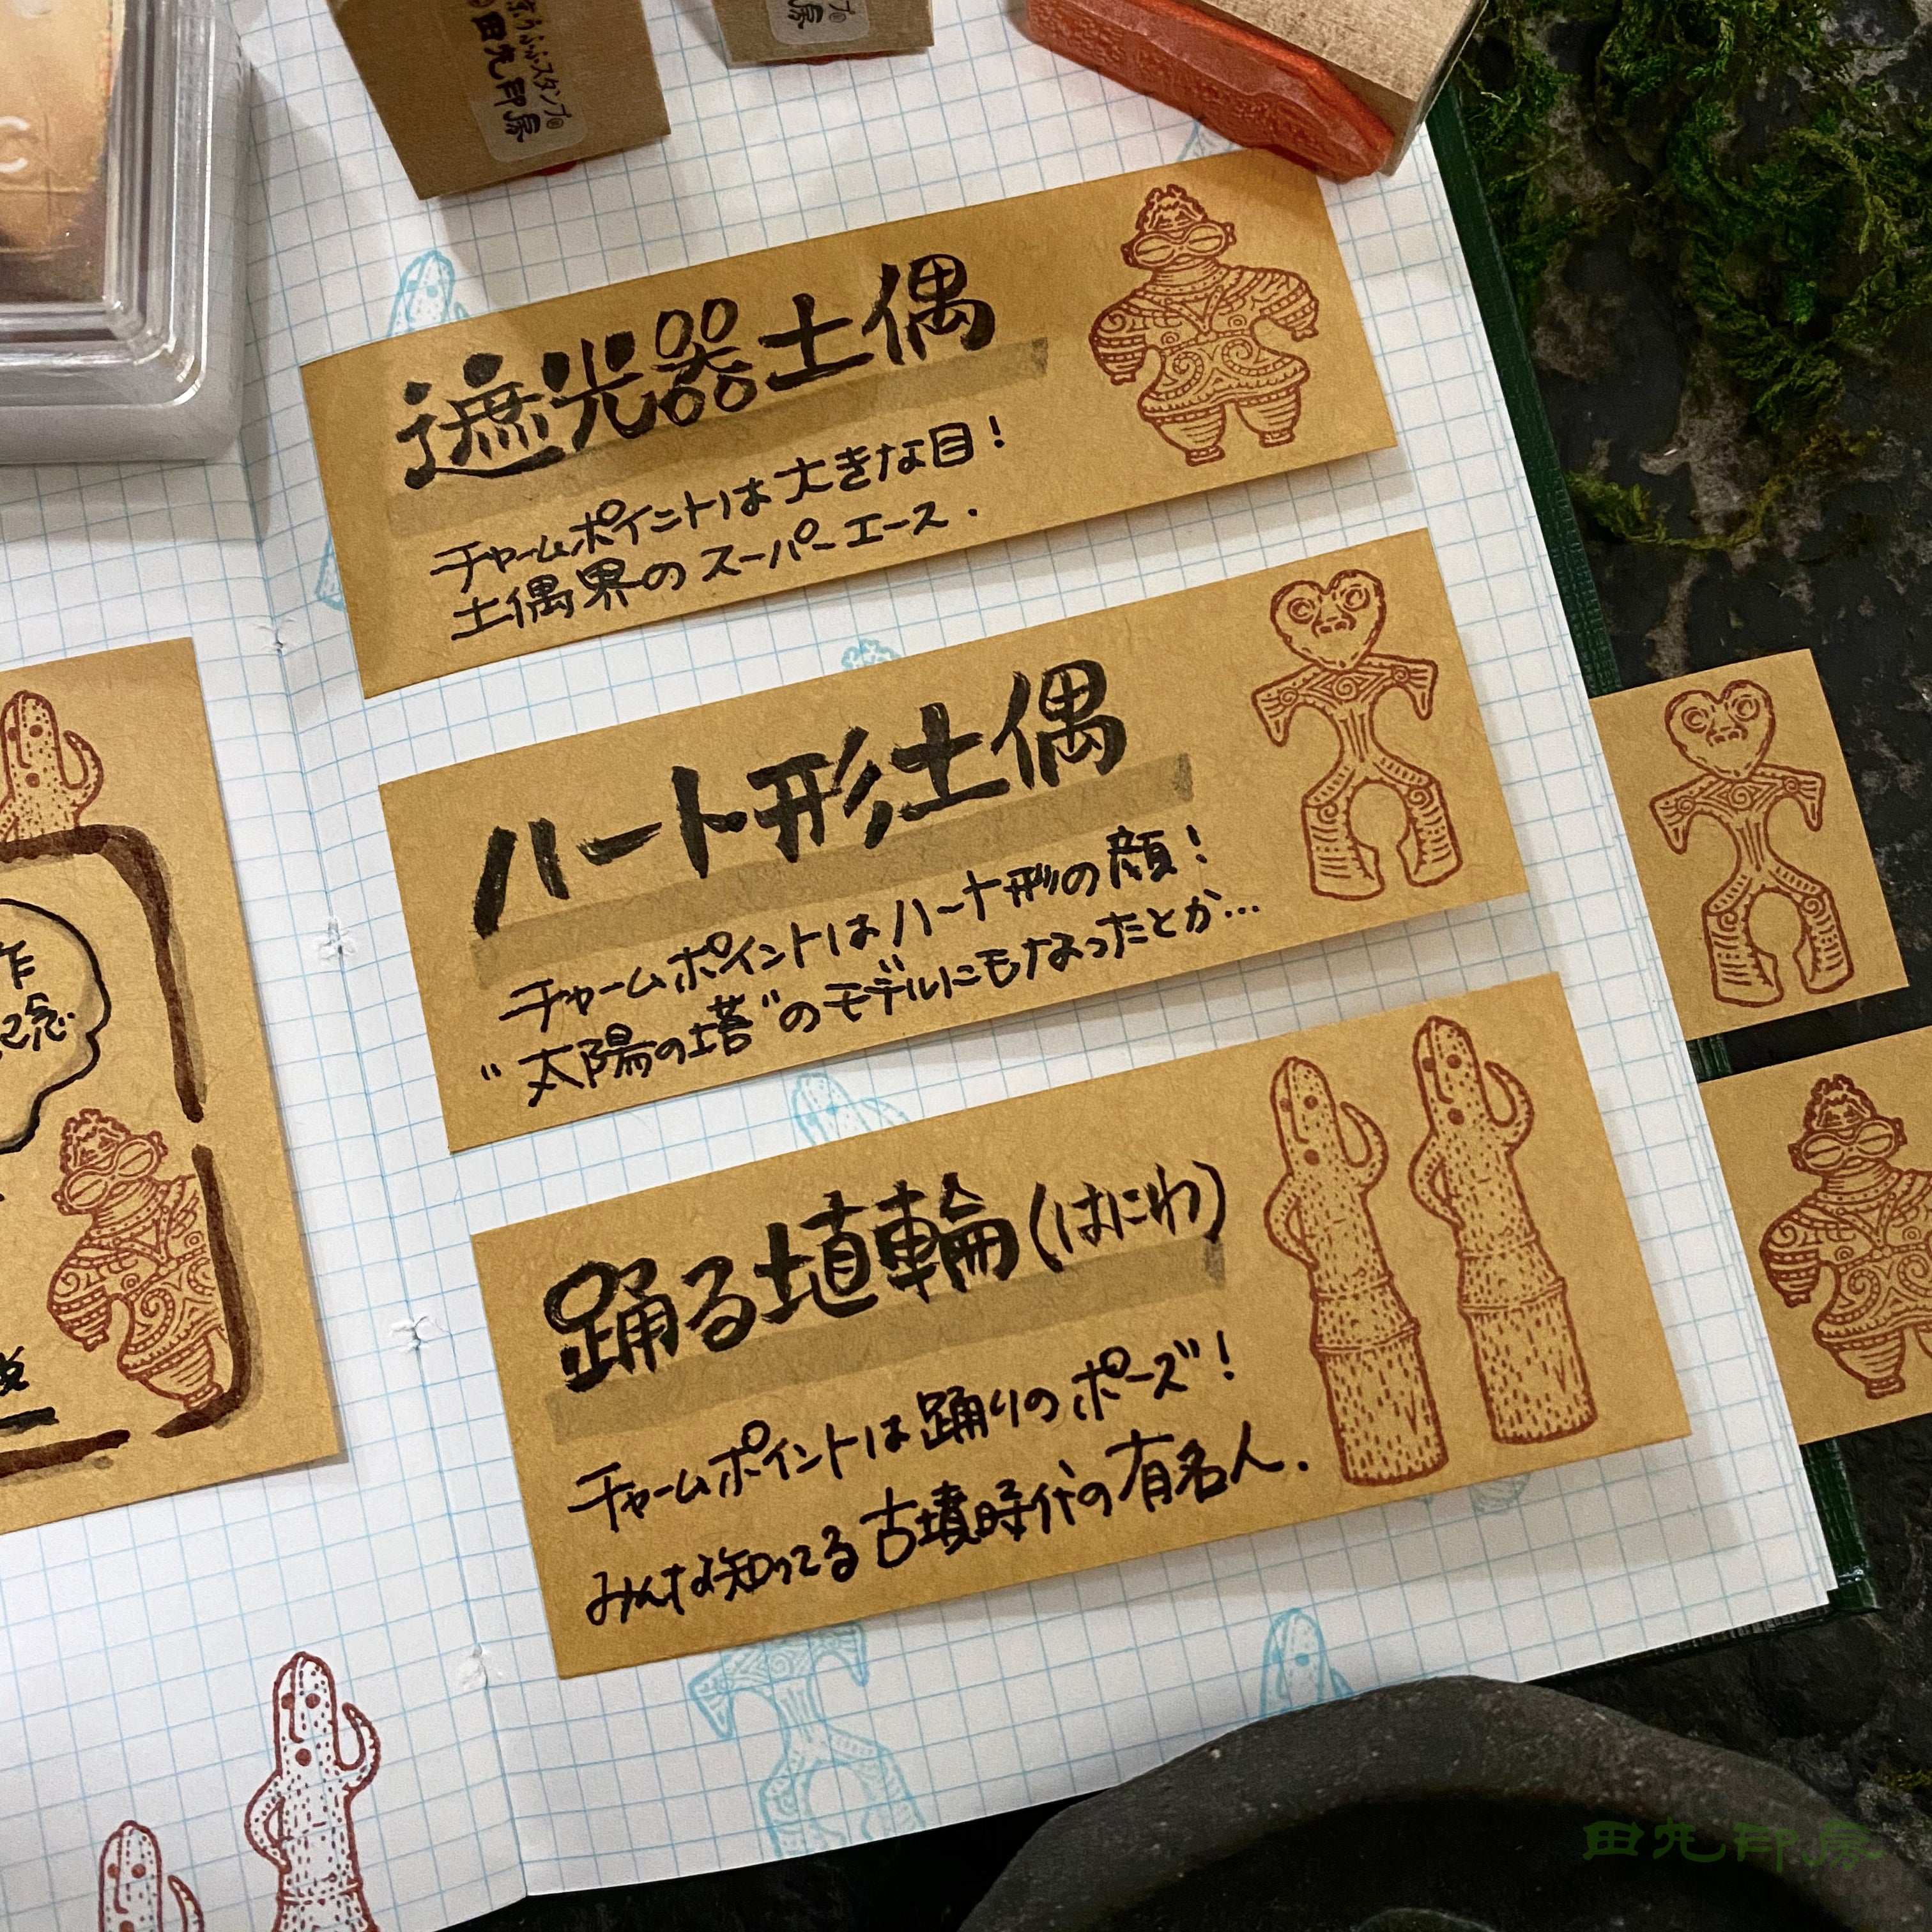 田丸印房
遮光器土偶
チャームポイントは大きな目!
土偶界のスーパーエース.
ハート形土偶
チャームポイントはハート形の顔!
“太陽の塔”のモデルにもなったとか…
踊る埴輪(はにわ)
チャームポイントは踊りのポーズ!
みんな知ってる古墳時代の有名人.
作
記念
C
田丸印房